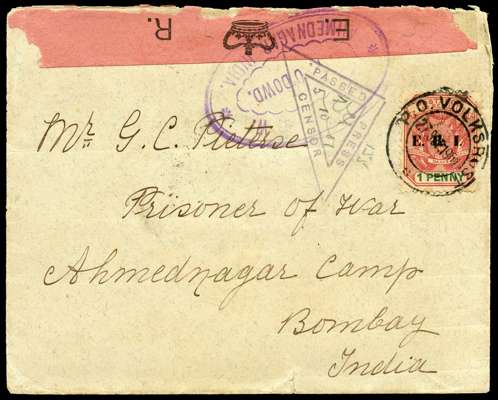 E. R.
AHMEDNAG
INDIA.
O'DOWD.
PASSED
PRESS
CENSOR
P.O. VOLKSRUST
E. R. I.
1 PENNY
Mr G. C. Pieterse
Prisoner of War
Ahmednagar Camp
Bombay
India